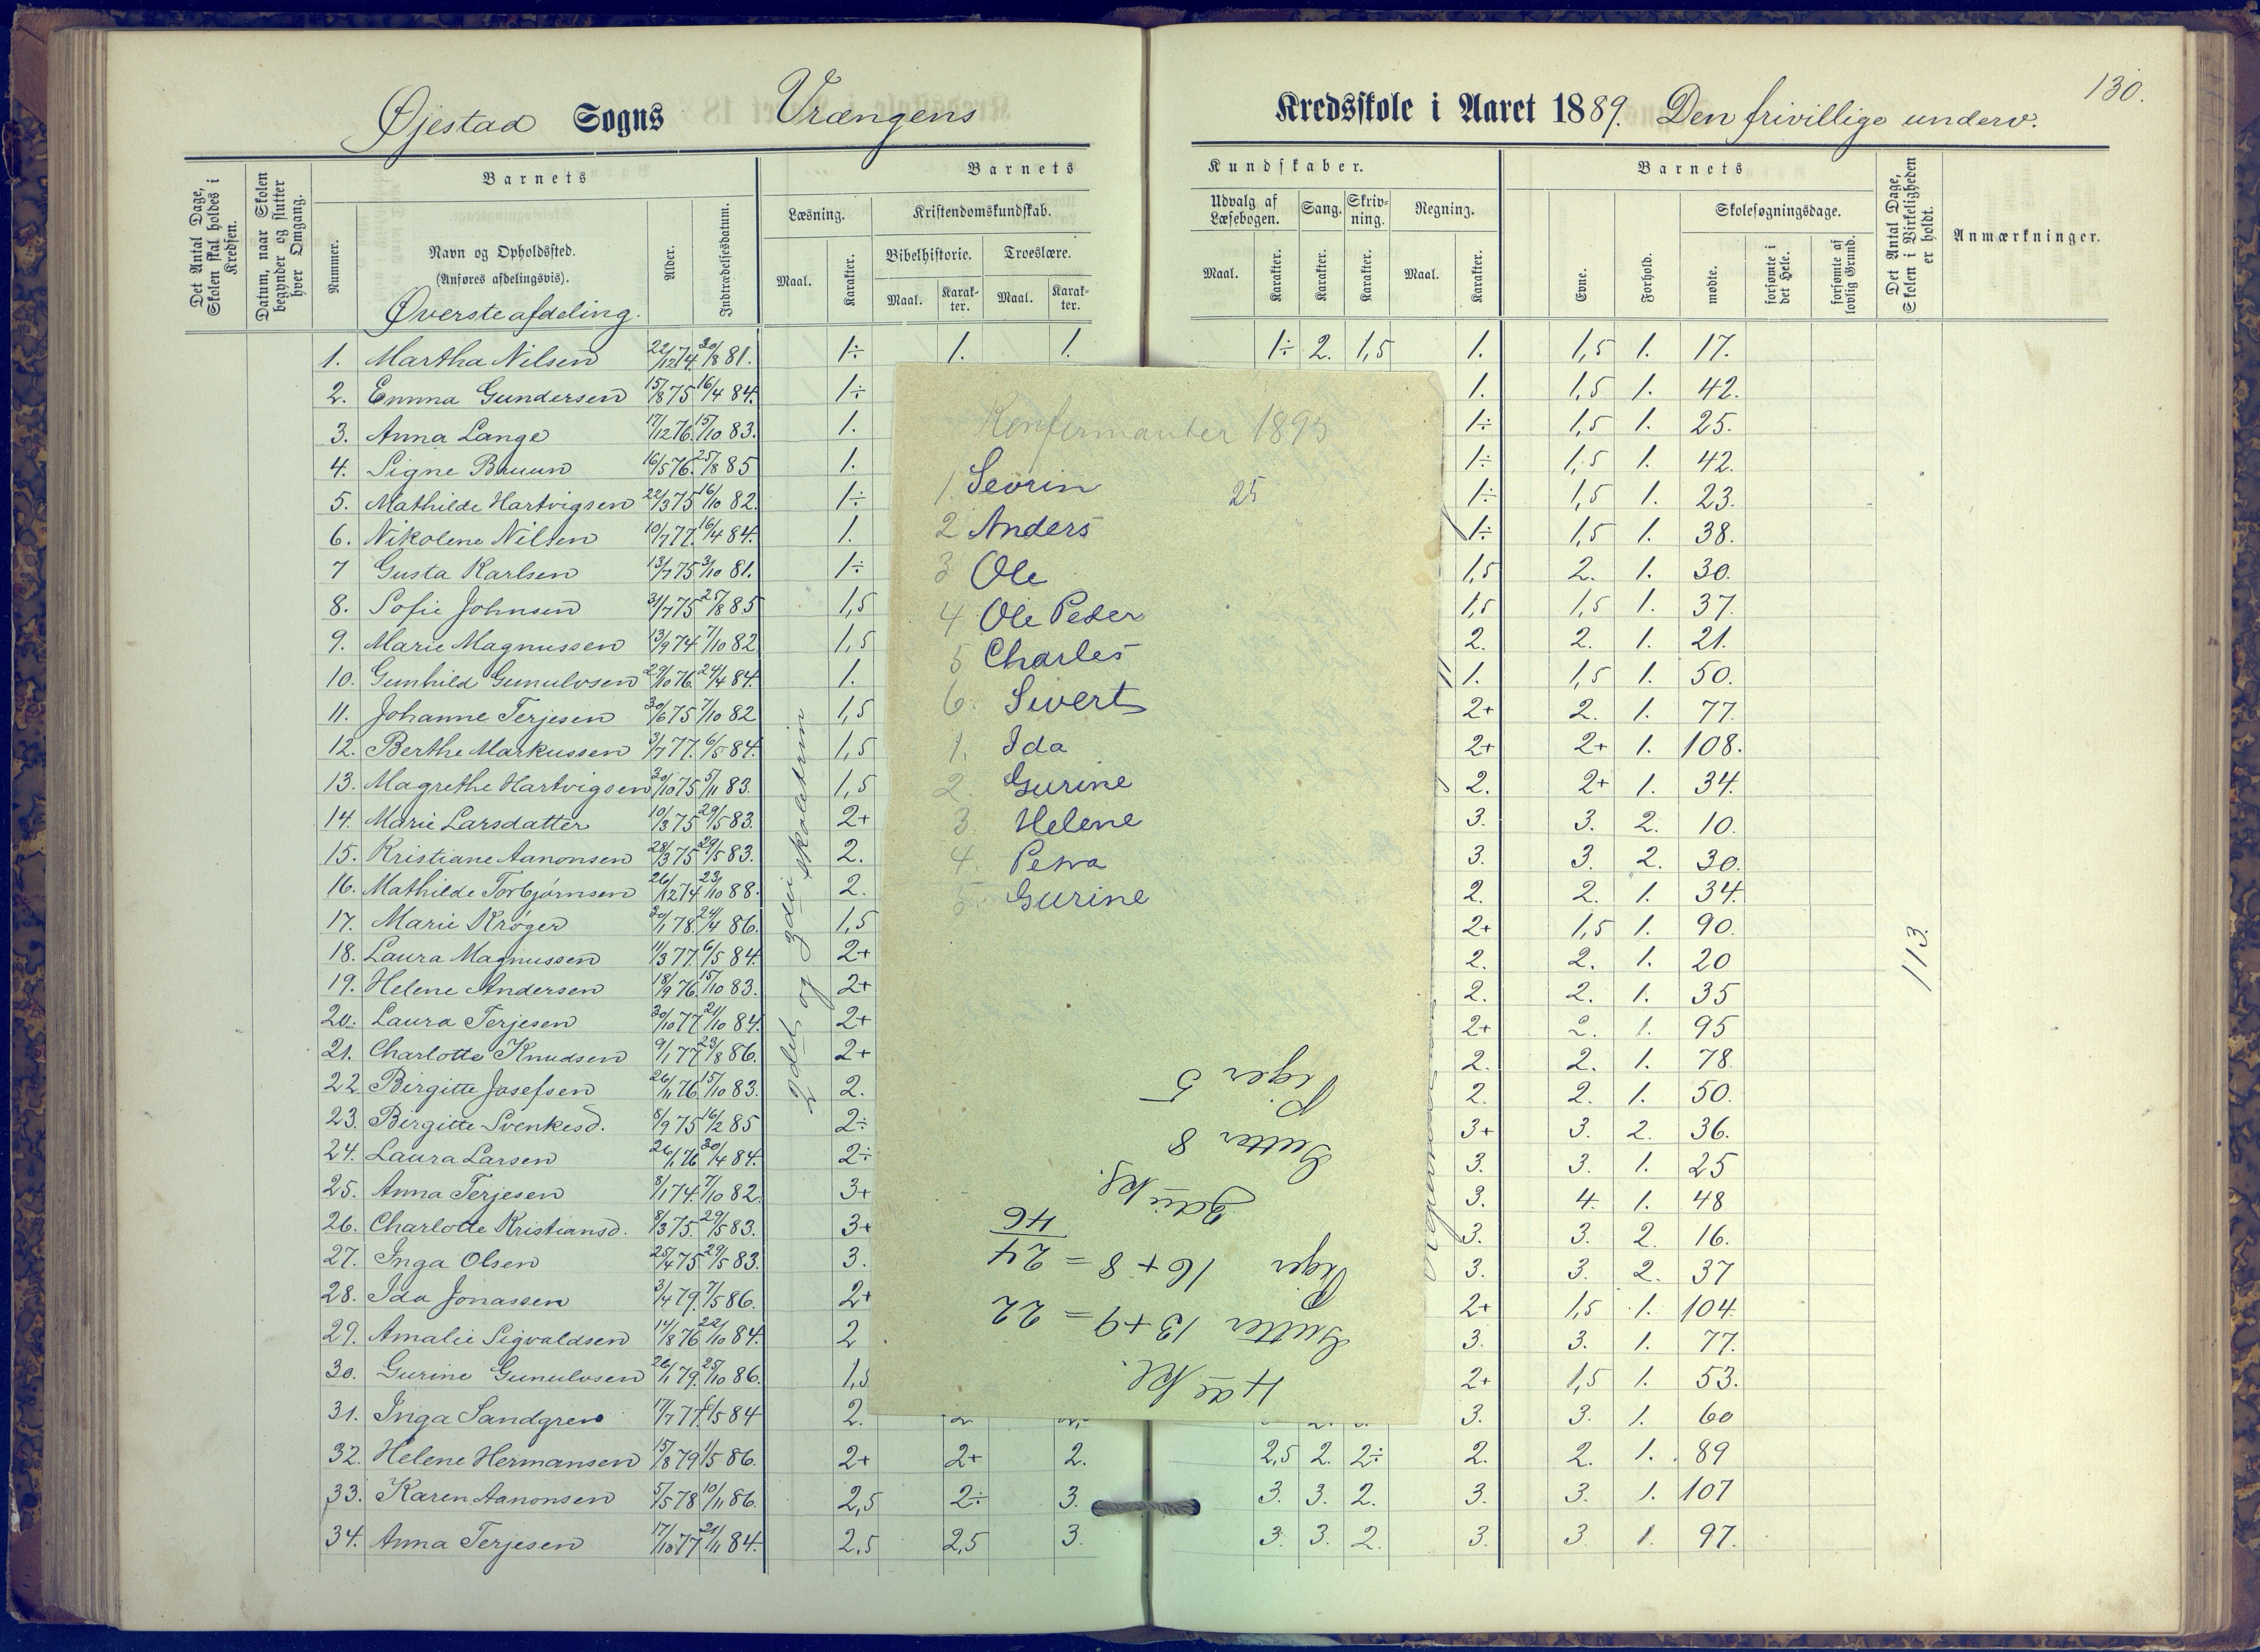 130.
Øjestad Sogns Vrængens Kredsskole i Aaret 1889. Den frivillige underv.
Det Antal Dage, Skolen skal holdes i Kredsen.
Datum, naar Skolen begynder og slutter hver Omgang.
Barnets
Nummer.
Navn og Opholdssted.
(Anføres afdelingsvis).
Øverste afdeling.
Alder.
Indtrædelsesdatum.
Barnets Kundskaber.
Læsning.
Maal. Karakter.
Kristendomskundskab.
Bibelhistorie. Troeslære.
Maal. Karakter. Maal. Karakter.
Udvalg af Læsebogen.
Maal. Karakter.
Sang. Karakter.
Skrivning. Karakter.
Regning.
Maal. Karakter.
Barnets
Evne. Forhold.
Skolesøgningsdage.
mødte. forsømte i det Hele. forsømte af lovlig Grund.
Det Antal Dage, Skolen i Virkeligheden er holdt.
Anmærkninger.
1. Martha Nilsen 22/12 74. 30/8 81. 1÷ 1. 1. 1÷ 2. 1,5 1. 1,5 1. 17.
2. Emma Gundersen 15/8 75 16/4 84. 1÷ 1. 1,5 1. 42.
3. Anna Lange 17/12 76. 15/10 83. 1. 1÷ 1,5 1. 25.
4. Signe Bruun 16/5 76. 25/8 85 1. 1÷ 1,5 1. 42.
5. Mathilde Hartvigsen 22/3 75 16/10 82. 1÷ 1÷ 1,5 1. 23.
6. Nikolene Nilsen 10/7 77. 16/4 84. 1. 1÷ 1,5 1. 38.
7 Gusta Karlsen 13/7 75 3/10 81. 1÷ 1,5 2. 1. 30.
8. Sofie Johnsen 31/7 75 25/8 85 1,5 1,5 1,5 1. 37.
9. Marie Magnussen 13/9 74 7/10 82 1,5 2. 2. 1. 21.
10. Gunhild Gunulvsen 29/10 76. 24/4 84. 1. 1. 1,5 1. 50.
11. Johanne Terjesen 30/6 75 7/10 82 1,5 2+ 2. 1. 77.
12. Berthe Markussen 3/7 77. 6/5 84. 1,5 2+ 2+ 1. 108.
13. Magrethe Hartvigsen 30/10 75 5/11 83. 1,5 2. 2+ 1. 34.
14. Marie Larsdatter 10/3 75 29/5 83. 2+ 3. 3. 2. 10.
15. Kristiane Aanonsen 28/3 75 29/5 83. 2. 3. 3. 2. 30.
16. Mathilde Torbjørnsen 26/12 74 23/10 88. 2. 2. 2. 1. 34.
17. Marie Krøger 30/1 78. 24/4 86. 1,5 2+ 1,5 1. 90.
18. Laura Magnussen 11/3 77. 6/5 84. 2+ 2. 2. 1. 20
19. Helene Andersen 18/9 76. 15/10 83. 2+ 2. 2. 1. 35
20. Laura Terjesen 30/10 77 21/10 84. 2+ 2+ 2. 1. 95
21. Charlotte Knudsen 9/1 77 23/8 86. 2+ 2. 2. 1. 78.
22. Birgitte Josefsen 26/11 76. 15/10 83. 2. 2. 2. 1. 50.
23. Birgitte Svenkesd. 8/9 75 16/2 85 2÷ 3+ 3. 2. 36.
24. Laura Larsen 26/1 76 30/4 84. 2÷ 3. 3. 1. 25
25. Anna Terjesen 8/1 74. 7/10 82. 3+ 3. 4. 1. 48
26. Charlotte Kristiansd. 8/3 75. 29/5 83. 3+ 3. 3. 2. 16.
27. Inga Olsen 25/4 75 29/5 83. 3. 3. 3. 2. 37
28. Ida Jonassen 3/4 79. 7/5 86. 2+ 2+ 1,5 1. 104.
29. Amalie Sigvaldsen 14/8 76 22/10 84. 2 3. 3. 1. 77.
30. Gurine Gunulvsen 26/1 79. 25/10 86. 1,5 2+ 1,5 1. 53.
31. Inga Sandgren 17/7 77. 6/5 84 2. 3. 3. 1. 60
32. Helene Hermansen 15/8 79 1/5 86. 2+ 2+ 2. 2,5 2. 2÷ 2. 2. 1. 89
33. Karen Aanonsen 5/5 78 10/11 86. 2,5 2÷ 3. 3. 3. 2. 3. 3. 1. 107
34. Anna Terjesen 17/10 77 21/11 84. 2,5 2,5 3. 3. 3. 2. 3. 3 1. 97.
2det og 3die skoletrin
113.
Konfirmanter 1895
1. Sevrin 25
2 Anders
3 Ole
4 Ole Peder
5 Charles
6. Sivert
1. Ida
2. Gurine
3. Helene
4. Petra
5. Gurine
4de Kl.
Gutter 13 + 9 = 22
Piger 16 + 8 = 24
46
3die kl.
Gutter 8
Piger 5